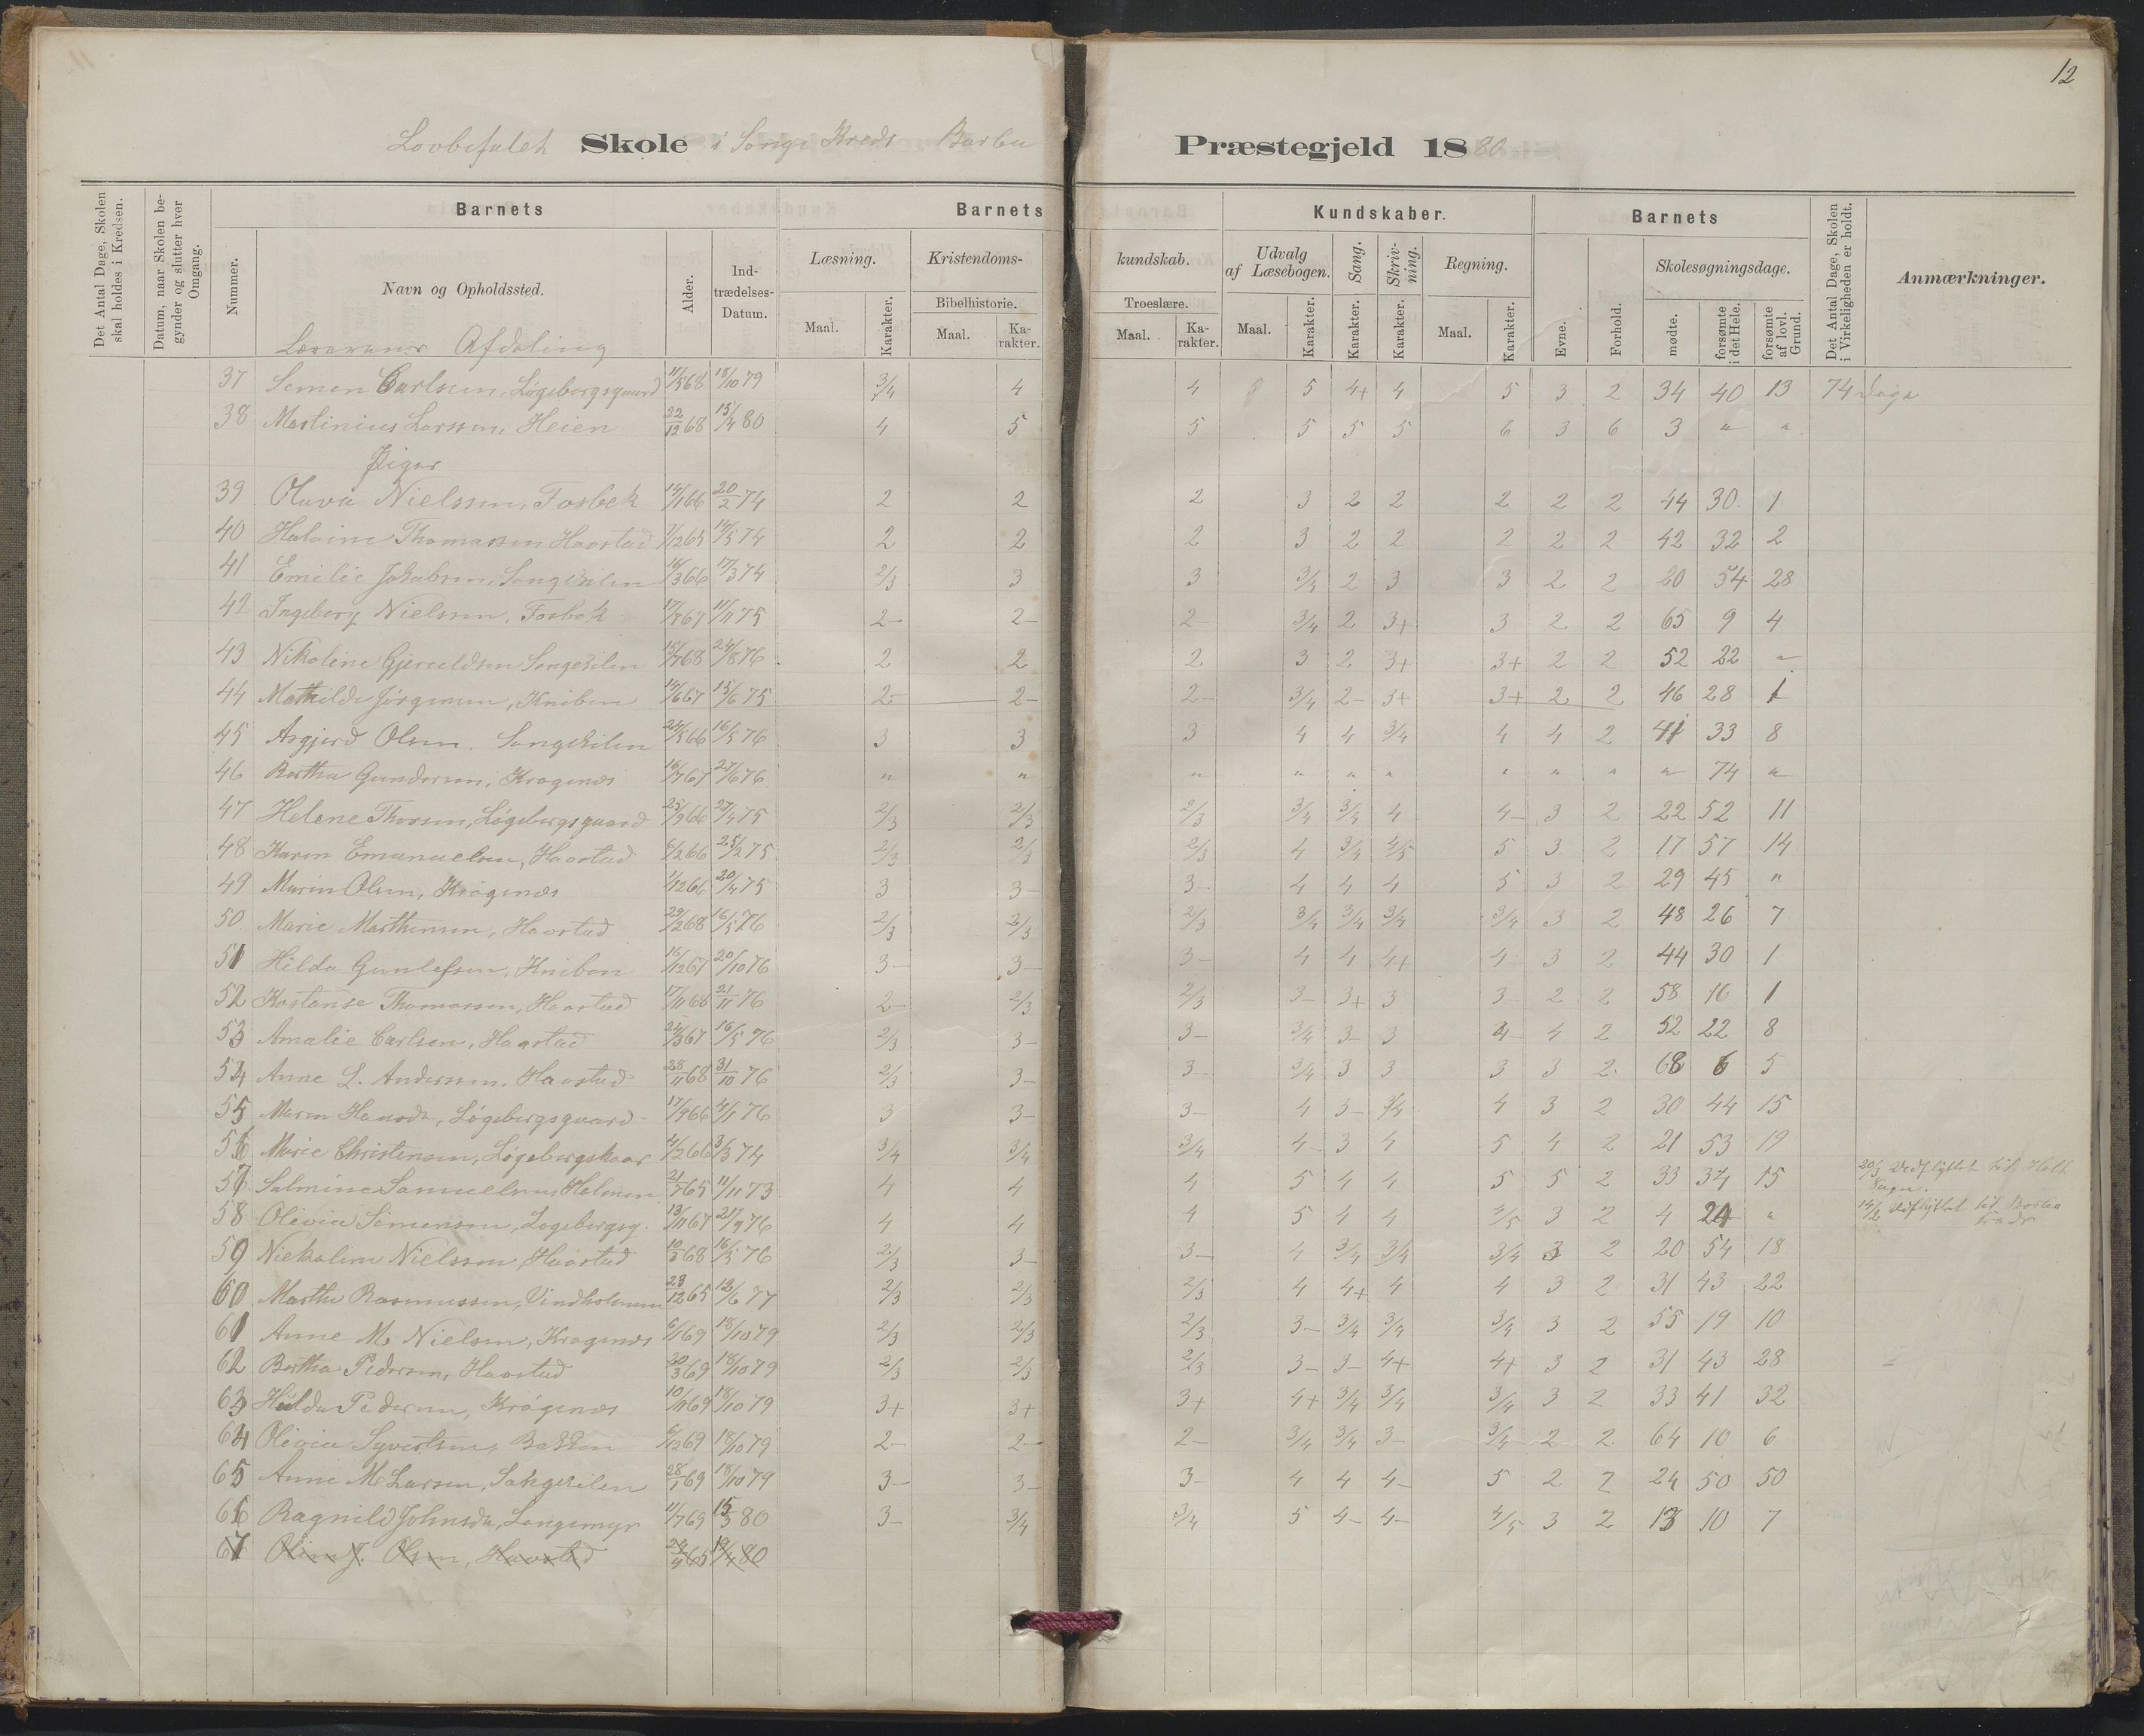 12
Lovbefalet Skole i Songe Kreds Barbu Præstegjeld 1880
Det Antal Dage, Skolen skal holdes i Kredsen.
Datum, naar Skolen begynder og slutter hver Omgang.
Barnets
Barnets
Kundskaber.
Barnets
Det Antal Dage, Skolen i Virkeligheden er holdt.
Anmærkninger.
Nummer.
Navn og Opholdssted.
Alder.
Ind-
trædelses-
Datum.
Læsning.
Kristendoms-
kundskab.
Udvalg
af Læsebogen.
Sang.
Skriv-
ning.
Regning.
Evne.
Forhold.
Skolesøgningsdage.
Bibelhistorie.
Troeslære.
Maal.
Karakter.
Maal.
Ka-
rakter.
Maal.
Ka-
rakter.
Maal.
Karakter.
Karakter.
Karakter.
Maal.
Karakter.
mødte.
forsømte
i det Hele.
forsømte
af lovl.
Grund.
Afdeling
37 Semen Carlsen, Løgebergsgaard 11/5 68 18/10 79 3/4 4 4 5 4+ 4 5 3 2 34 40 13 74 Dage
38 Martinius Larssen, Heien 22/12 68 15/4 80 4 5 5 5 5 5 6 3 6 3 " "
Piger
39 Olava Nielssen, Fosbek 14/1 66 20/2 74 2 2 2 3 2 2 2 2 2 44 30 1
40 Thomassen Haastad 7/12 65 14/5 74 2 2 2 3 2 2 2 2 2 42 32 2
41 Emilie Jakobsen, Songekilen 14/3 66 17/3 74 2/3 3 3 3/4 2 3 3 2 2 20 54 28
42 Ingeborg Nielssen, Fosbek 17/7 67 11/11 75 2- 2- 2- 3/4 2 3+ 3 2 2 65 9 4
43 Nikoline Gjeruldsen Songekilen 18/7 68 24/8 76 2 2 2 3 2 3+ 3+ 2 2 52 22 "
44 Mathilde Jørgensen, Kniben 14/6 67 15/6 75 2- 2- 2- 3/4 2- 3+ 3+ 2 2 46 28 1
45 Asgjerd Olsen. Songekilen 24/5 66 16/5 76 3 3 3 4 4 3/4 4 4 2 41 33 8
46 Bertha Gundersen, Krogenæs 16/7 67 27/6 76 " " " " " " " " " " 74 "
47 Helene Thorsen, Løgebergsgaard 25/9 66 27/4 75 2/3 2/3 2/3 3/4 3/4 4 4- 3 2 22 52 11
48 Karen Emanuelsen, Haastad 6/2 66 25/2 75 2/3 2/3 2/3 4 3/4 4/5 5 3 2 17 57 14
49 Maren Olsen, Krøgenæs 1/12 66 20/4 75 3 3- 3- 4 4 4 5 3 2 29 45 "
50 Marie Marthinsen, Haastad 29/2 68 16/5 76 2/3 2/3 2/3 3/4 3/4 3/4 3/4 3 2 48 26 7
51 Hilda Gunlefsen, Kniben 16/12 67 20/10 76 3- 3- 3- 4 4 4+ 4 3 2 44 30 1
52 Kostanse Thomassen, Haastad 17/11 68 21/11 76 2- 2/3 2/3 3- 3+ 3 3- 2 2 58 16 1
53 Amalie Carlsen, Haastad 24/3 67 16/5 76 2/3 3- 3- 3/4 3- 3 4 4 2 52 22 8
54 Anne L. Andersen, Haastad 28/11 68 31/10 76 2/3 3- 3- 3/4 3 3 3 3 2 68 6 5
55 Maren Hansdr, Løgebergsgaard 17/9 66 4/1 76 3 3- 3- 4 3- 3/4 4 3 2 30 44 15
56 Marie Christensen, Løgebergskaar 4/2 66 3/3 74 3/4 3/4 3/4 4 3 4 5 4 2 21 53 19
57 Salmine Samuelsen, Holmen 21/7 65 11/11 73 4 4 4 5 4 4 5 5 2 33 37 15 20/3 Udflyttet til Holt
Sogn.
58 Olivia Simensen, Løgebergsg. 13/11 67 21/9 76 4 4 4 5 4 4 4/5 3 2 4 24 " 14/2 udflyttet til
59 Niekoline Nielssen, Haastad 10/3 68 16/5 76 2/3 3- 3- 4 3/4 3/4 3/4 3 2 20 54 18
60 Marthe Rasmussen, Vindholmen 23/12 65 12/6 77 2/3 2/3 2/3 4 4+ 4 4 3 2 31 43 22
61 Anne M. Nielsen, Krogenæs 6/1 69 18/10 79 2/3 2/3 2/3 3- 3/4 3/4 3/4 3 2 55 19 10
62 Bertha Pedersen, Haastad 30/3 69 18/10 79 2/3 2/3 2/3 3- 3- 4+ 4+ 3 2 31 43 28
63 Hulda Pedersen, Krøgenæs 10/11 69 18/10 79 3+ 3+ 3+ 4+ 3/4 3/4 3/4 3 2 33 41 32
64 Olivia Syvertsen, Bakken 6/12 69 18/10 79 2- 2- 2- 3/4 3/4 3- 3/4 2 2 64 10 6
65 Anne M Larsen, Songekilen 28/1 69 18/10 79 3- 3- 3- 4 4 4- 5 2 2 24 50 50
66 Ragnild Johnsdr, Langemyr 11/7 69 15/3 80 3- 3/4 3/4 5 4- 4- 4/5 3 2 13 10 7
67 Oline J. Olsen, Haastad 24/4 65 19/4 80